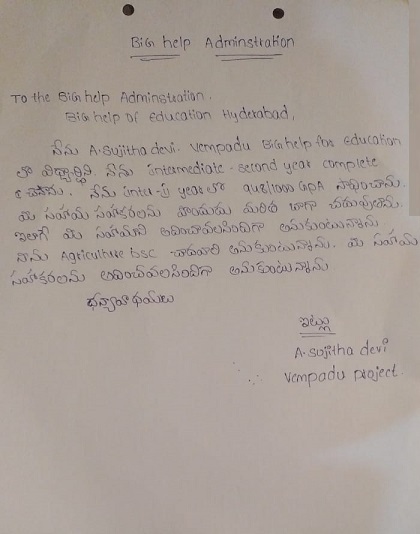 BiG help Adminstration
To the BiG help Adminstration,
BiG help of Education Hyderabad,
నేను A.Sujitha devi. Vempadu BiG help for Education
లో విద్యార్థిని. నేను intermediate - second year complete
చేశాను. నేను inter year లో GPA సాధించాను.
మీ సహాయ సహకారలను బాగా చదువుతాను.
ఇలాగే మీ సహాయాన్ని అందించవలసిందిగా అనుకుంటున్నాను
నాను Agriculture bsc చాదవాలి అనుకుంటున్నాను. మీ సహాయ
సహాకారలను అందించవలసిందిగా అనుకుంటున్నాను
ఇట్లు
A.Sujitha devi
Vempadu project.